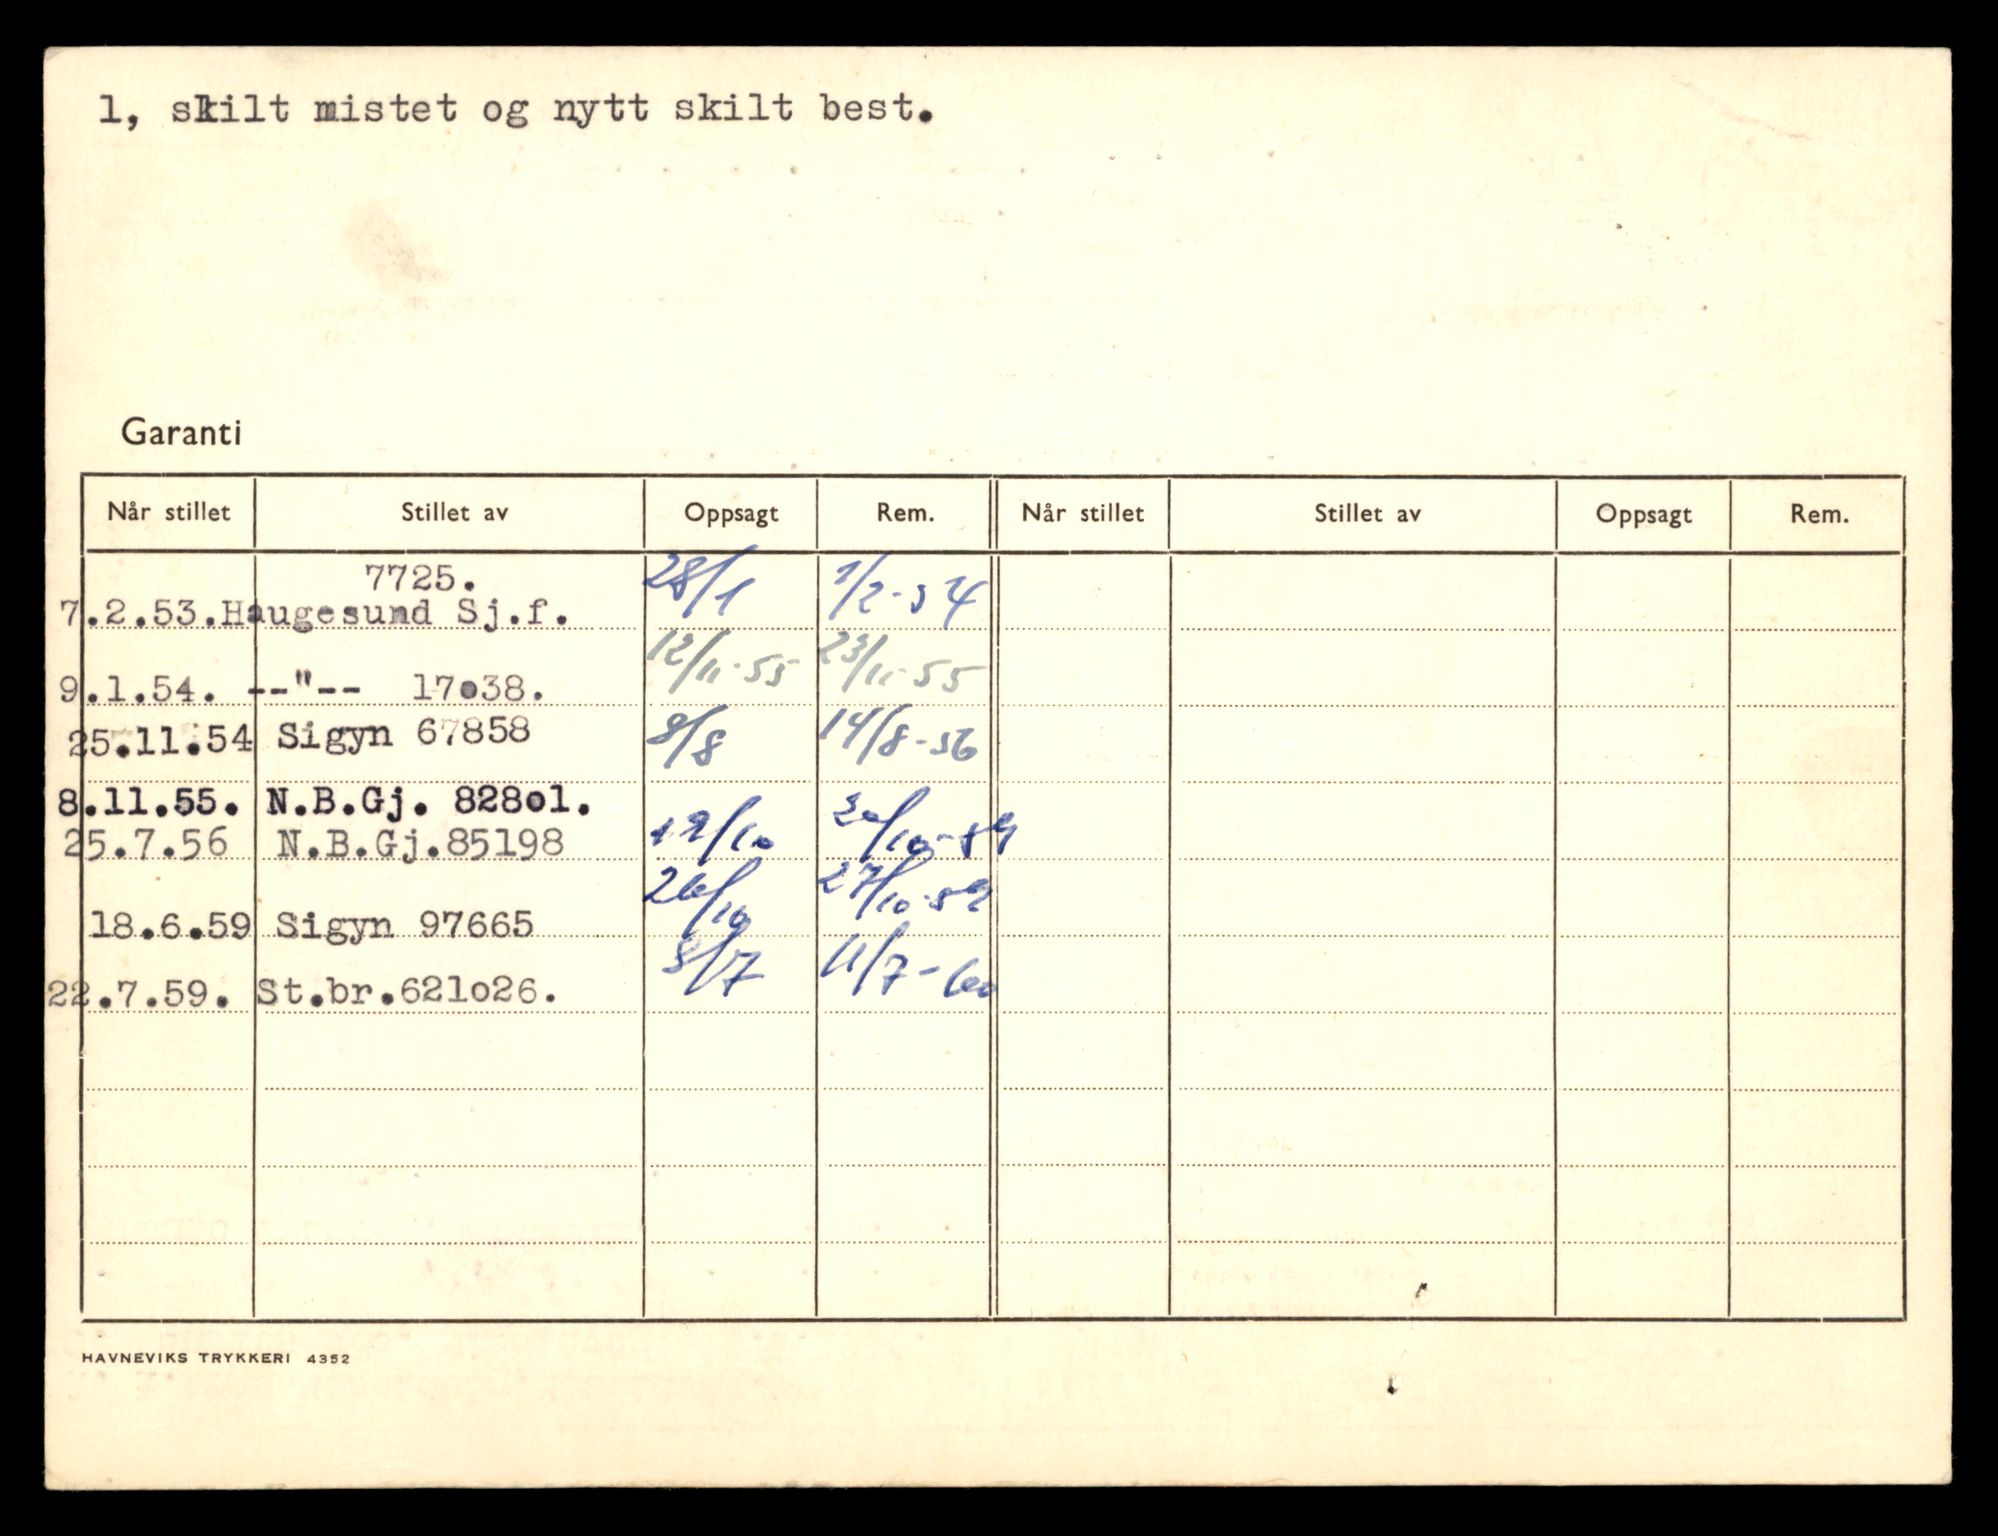 1, skilt mistet og nytt skilt best.
Garanti
Når stillet Stillet av Oppsagt Rem. Når stillet Stillet av Oppsagt Rem.
7725. 28/1 1/2-54
7.2.53.Haugesund Sj.f.
12/11-55 23/11-55
9.1.54. --"-- 17o38.
25.11.54 Sigyn 67858 8/8 14/8-56
8.11.55. N.B.Gj. 828o1.
25.7.56 N.B.Gj.85198 12/10 /10-59
26/10 27/10-59
18.6.59 Sigyn 97665
/7 11/7-60
22.7.59. St.br.621o26.
HAVNEVIKS TRYKKERI 4352